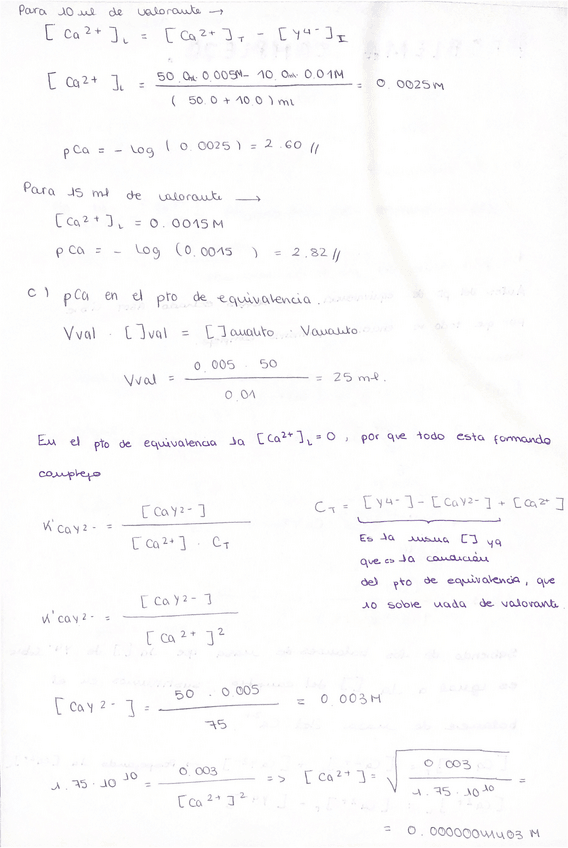 Para 10 ml de valorante →
[Ca²⁺]L = [Ca²⁺]T - [Y⁴⁻]I
[Ca²⁺]L = (50.0ml · 0.005M - 10.0ml · 0.01M) / (50.0 + 10.0) ml = 0.0025M
pCa = - log (0.0025) = 2.60 //
Para 15 ml de valorante →
[Ca²⁺]L = 0.0015M
pCa = - log (0.0015 ) = 2.82 //
c) pCa en el pto de equivalencia.
Vval · [ ]val = [ ]analito · Vanalito
Vval = (0.005 · 50) / 0.01 = 25 ml.
En el pto de equivalencia la [Ca²⁺]L = 0, por que todo esta formando
complejo
K'CaY²⁻ = [CaY²⁻] / ([Ca²⁺] · CT)
CT = [Y⁴⁻] - [CaY²⁻] + [Ca²⁺]
Es la misma [ ] ya
que es la condición
del pto de equivalencia, que
no sobre nada de valorante.
K'CaY²⁻ = [CaY²⁻] / [Ca²⁺]²
[CaY²⁻] = (50 · 0.005) / 75 = 0.003M
1.75 · 10¹⁰ = 0.003 / [Ca²⁺]² => [Ca²⁺] = √(0.003 / 1.75 · 10¹⁰) =